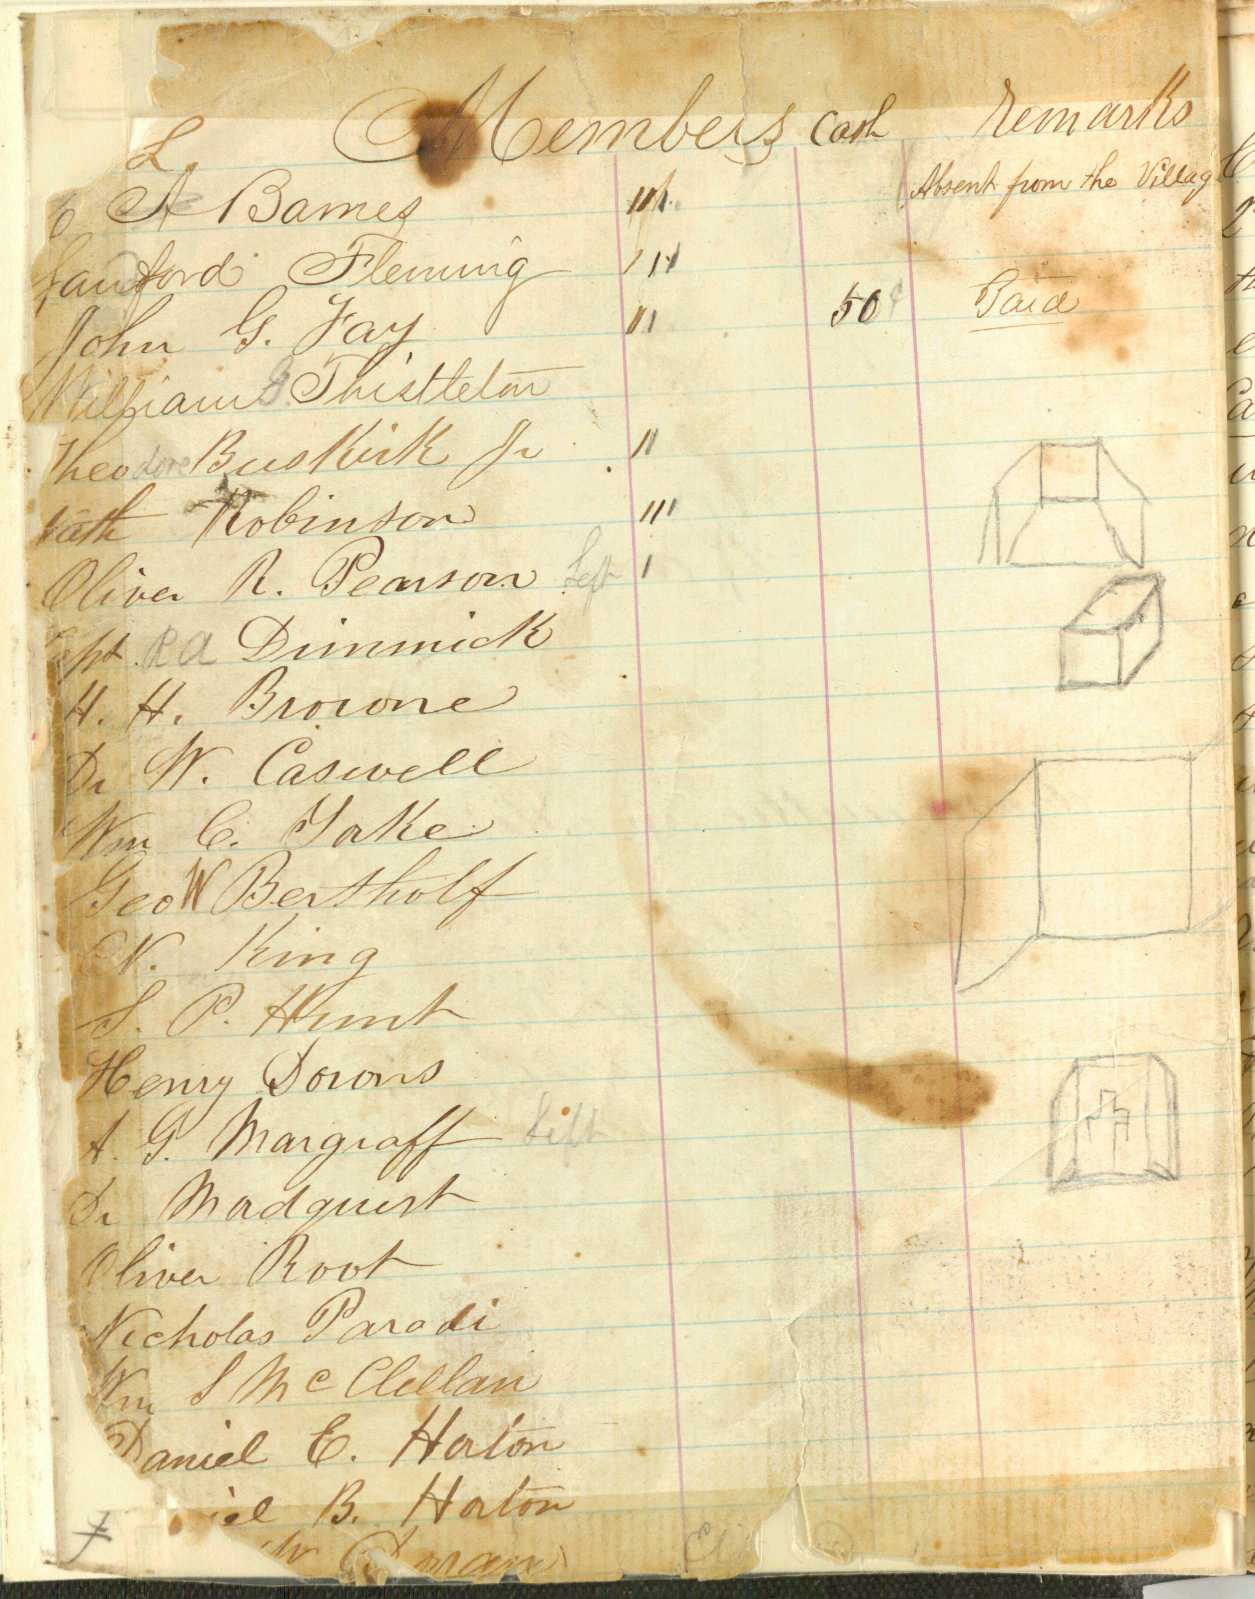 Members Cash Remarks
L. A Barnes Absent from the Villag
Sandford Fleming
John G. Fay 50¢ Paid
William J Thistleton
Theodore BusKirk Jr
Nath Robinson
Oliver R. Pearson Left
Capt R A Dimmick
H. H. Browne
Dr W. Caswell
Wm C. Take
Geo W Bertholf
N. King
S. P. Hunt
Henry Downs
A. G. Margraff Left
Dr Madquest
Oliver Root
Nicholas Paradi
Wm S Mc Clellan
Daniel E. Horton
iel B. Horton